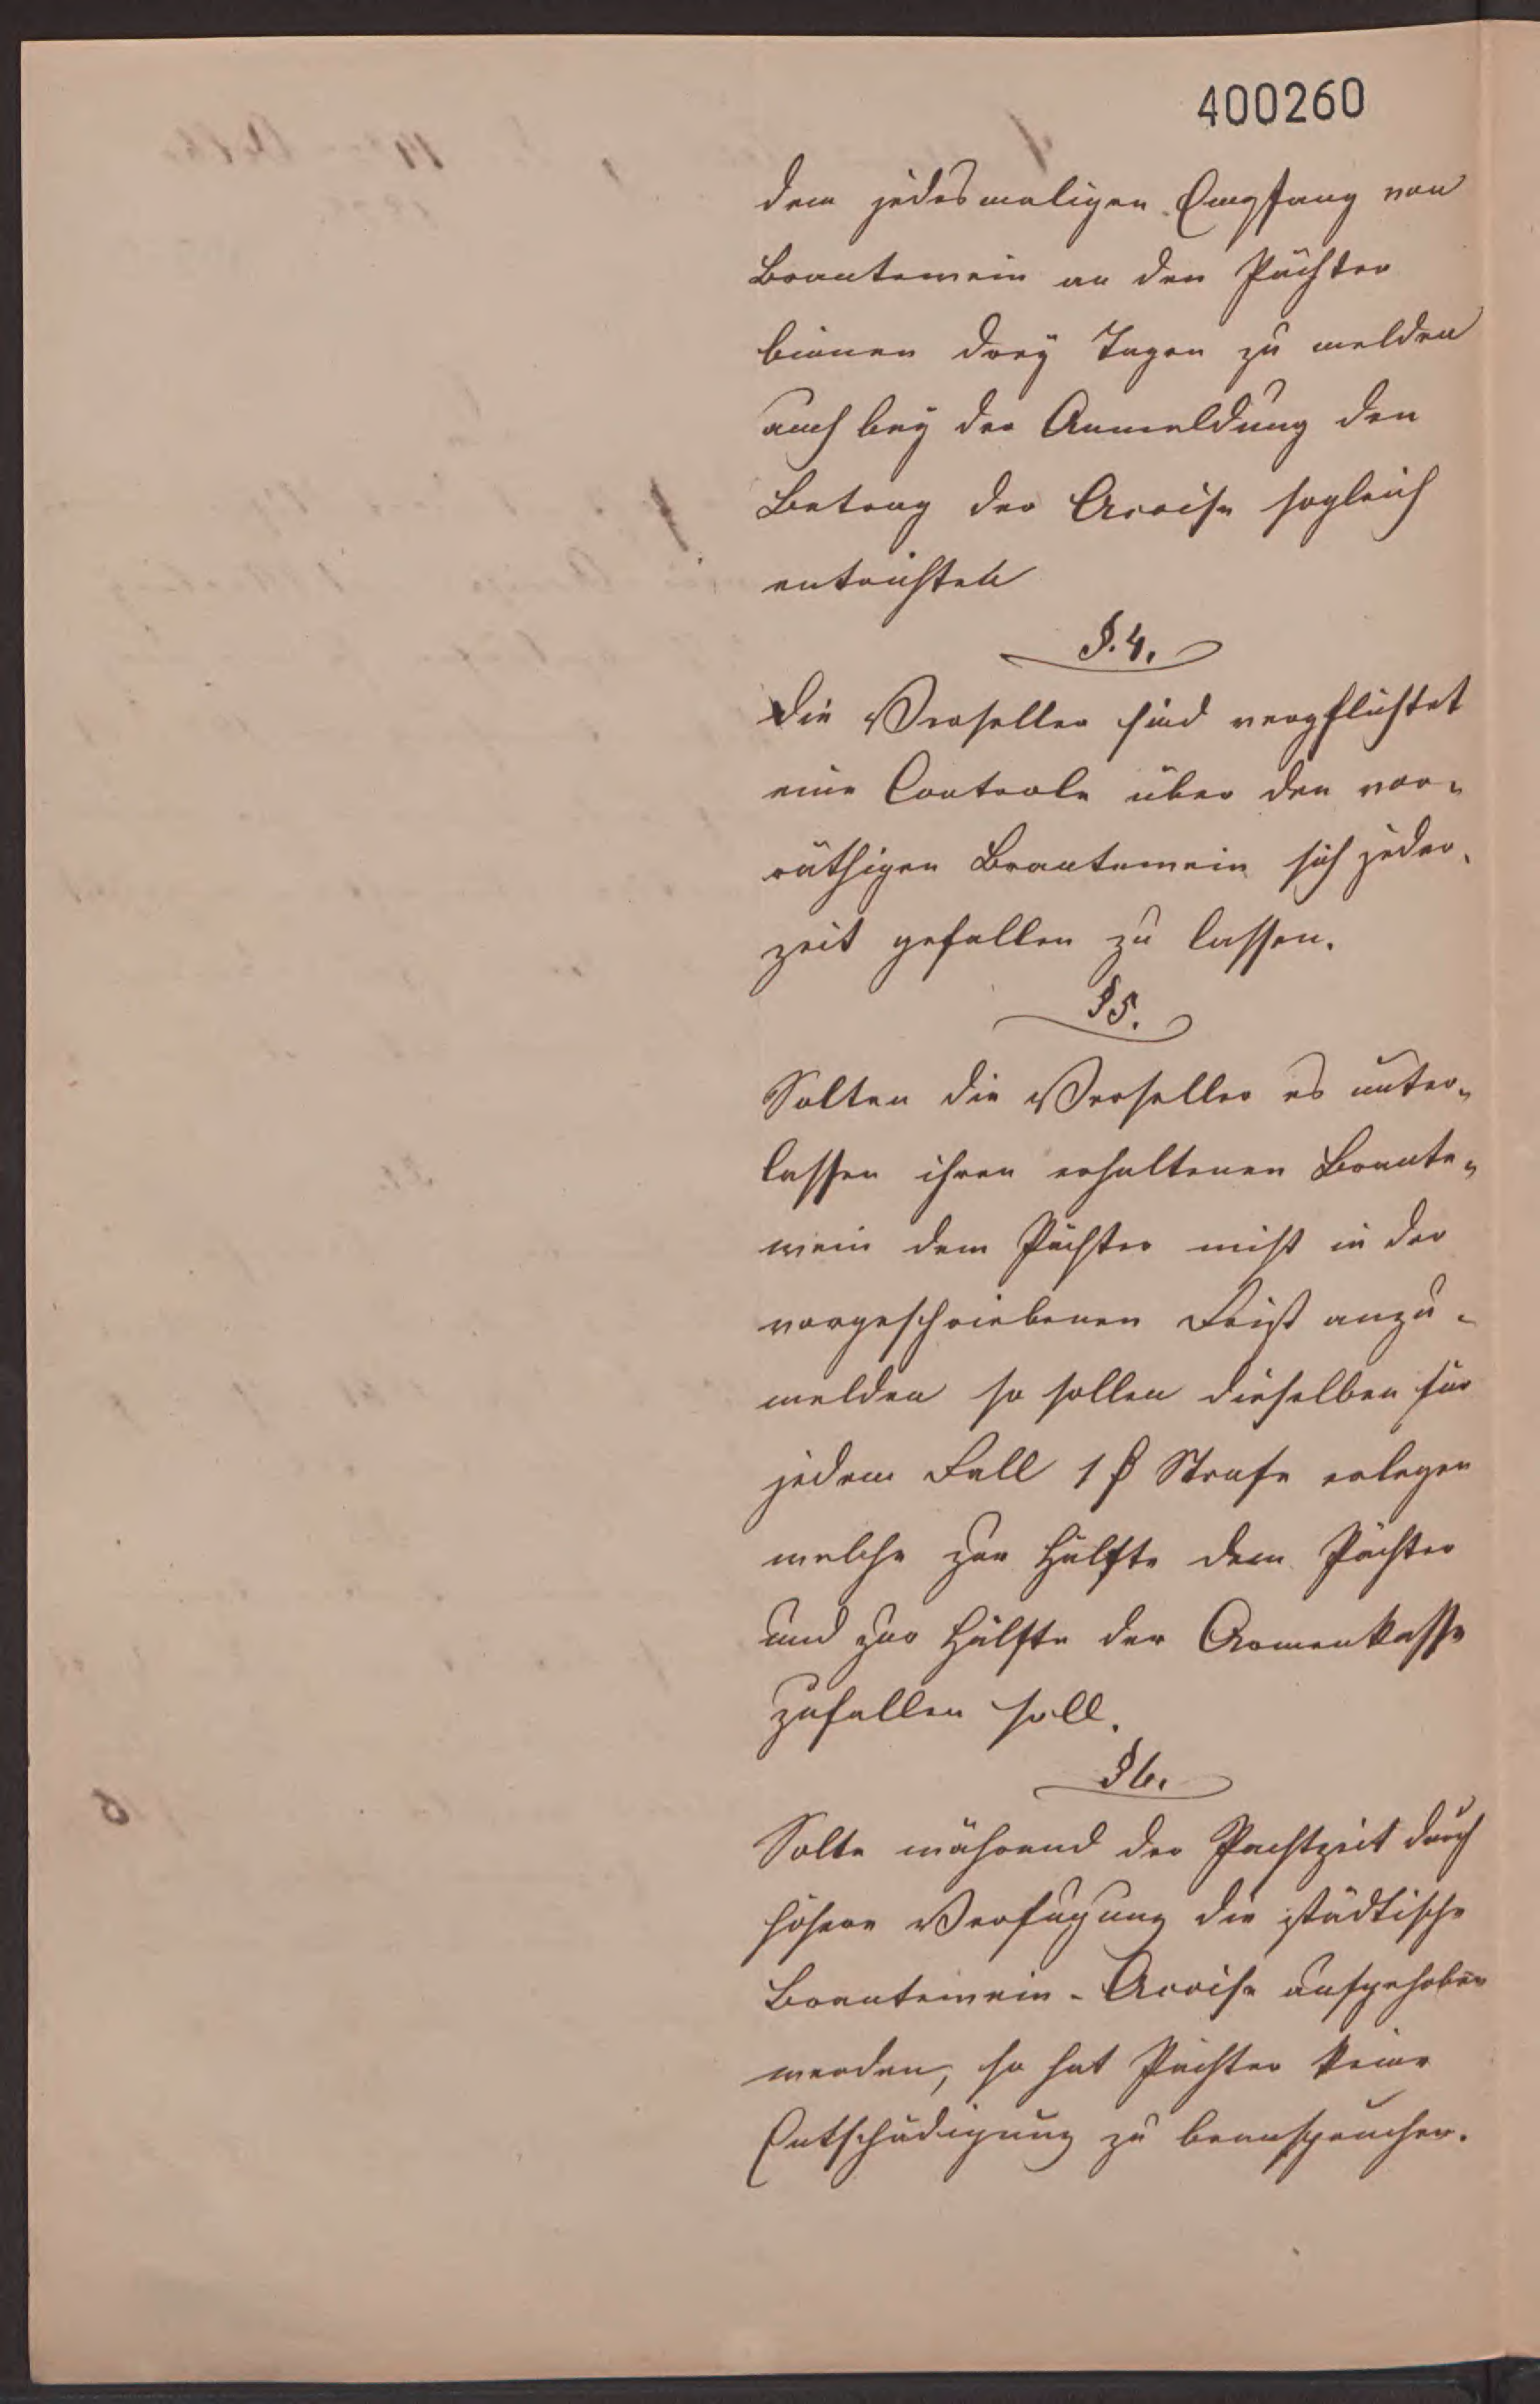 400260
dem jedesmaligen Empfang von
Brantewein an den Pächter
binnen dreÿ Tagen zu melden
auch beÿ der Anmeldung den
Betrag der Accise sogleich
entrichten
§. 4.
Die Verseller sind verpflichtet
eine Controle über den vor-
räthigen Brantewein sich jeder-
zeit gefallen zu lassen.
§ 5.
Solten die Verseller es unter-
lassen ihren erhaltenen Brante-
wein dem Pächter nicht in der
vorgeschriebenen Frist anzu-
melden so sollen dieselben für
jedem Fall 1 Strafe erlegen
welche zur Hälfte dem Pächter
und zur Hälfte der Armenkasse
zufallen soll.
§ 6.
Solte während der Pachtzeit durch
höhere Verfügung die städtische
Brantewein-Accise aufgehoben
werden, so hat Pächter keine
Entschädigung zu beanspruchen.